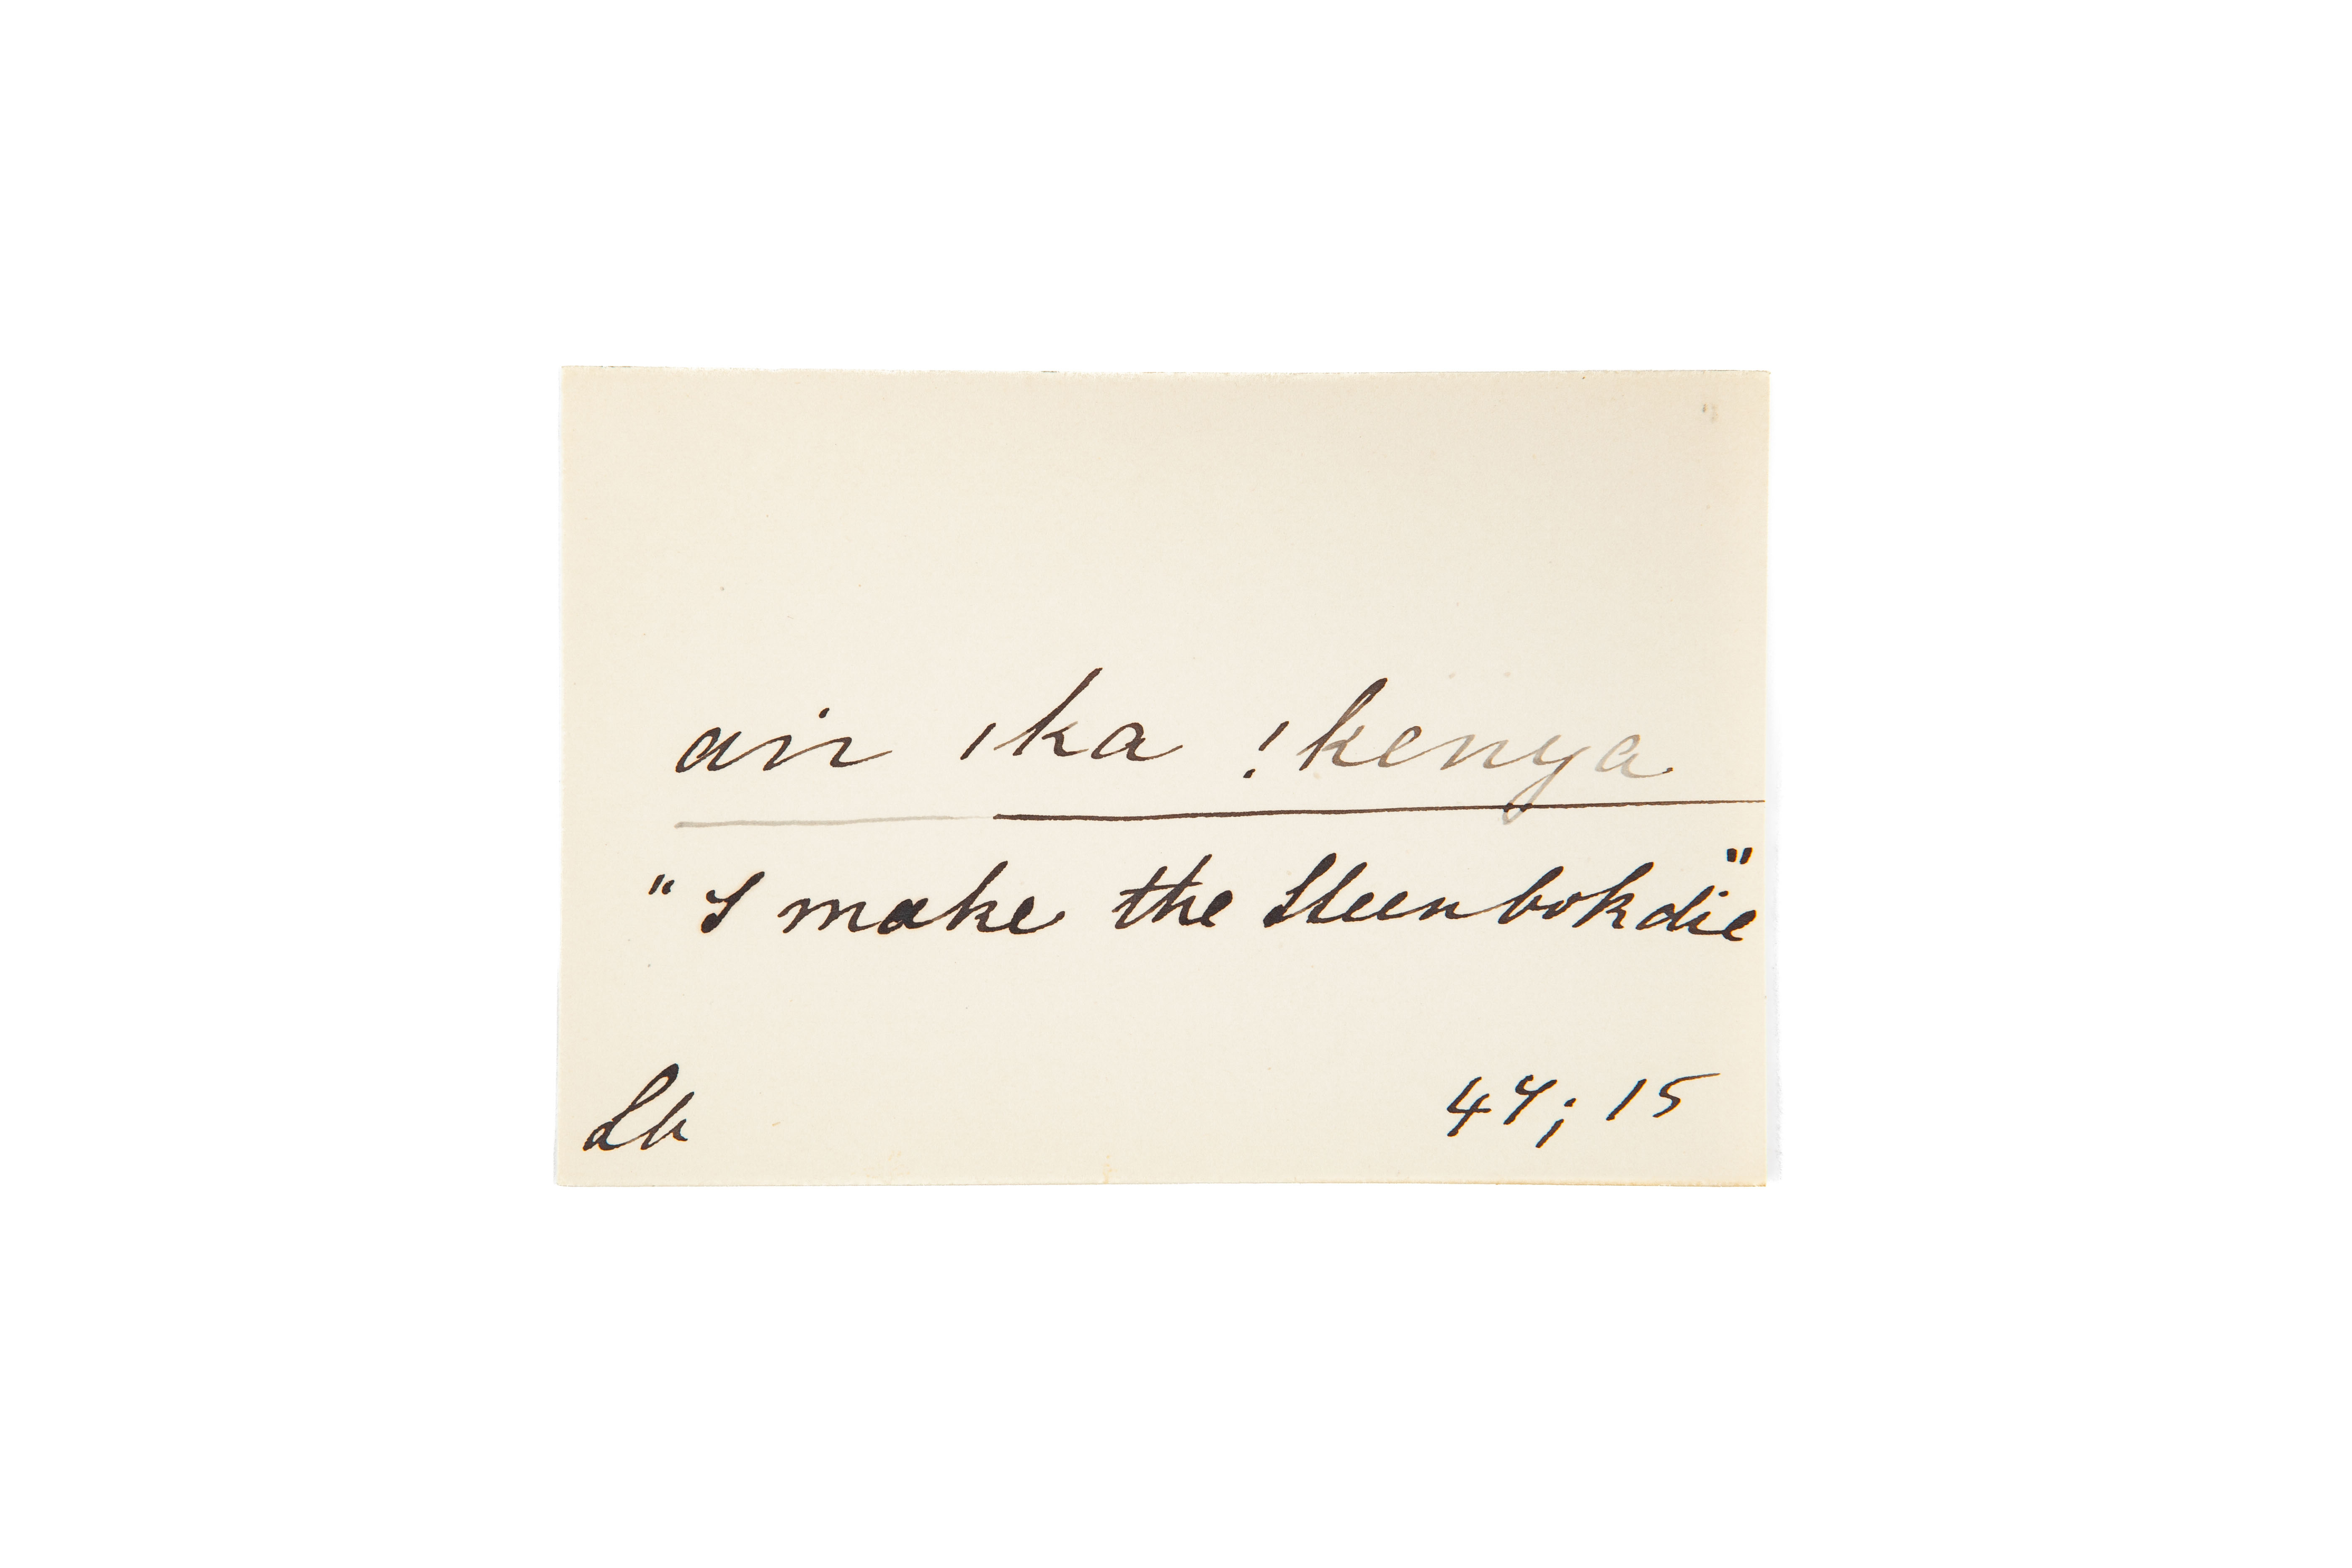 ain ıka !kenya
"I make the Steenbok die"
Lb 44; 15